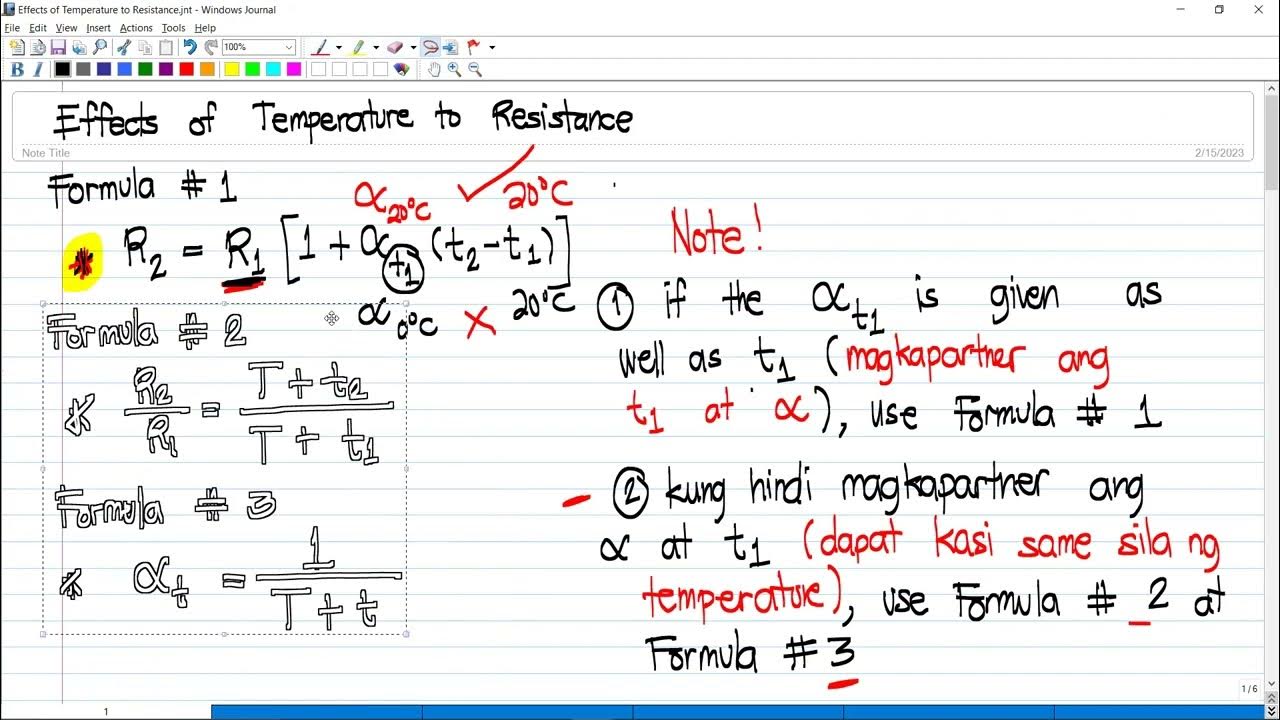 Effects of Temperature to Resistance.jnt - Windows Journal
File Edit View Insert Actions Tools Help
100%
B I
Effects of Temperature to Resistance
Note Title
2/15/2023
Formula # 1
α20°C ✓ 20°C
* R2 = R1 [1 + αt1 (t2 - t1)]
α0°C X 20°C
Formula # 2
* R2/R1 = T + t2 / T + t1
Formula # 3
* αt = 1 / T + t
Note!
① if the αt1 is given as
well as t1 (magkapartner ang
t1 at α), use Formula # 1
② kung hindi magkapartner ang
α at t1 (dapat kasi same sila ng
temperature), use Formula # 2 at
Formula # 3
1/6
1